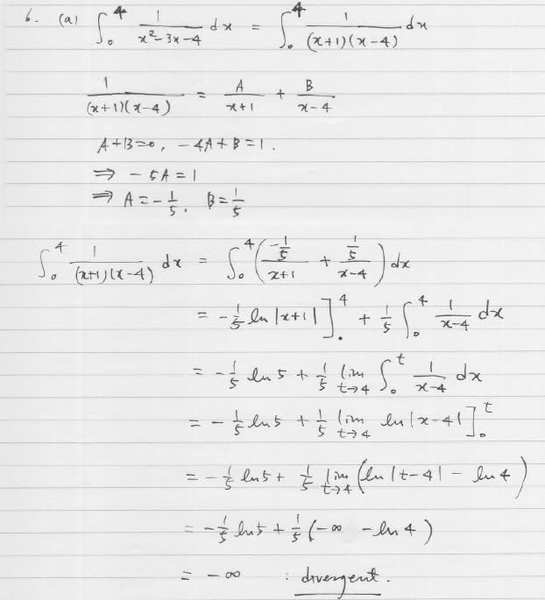 6. (a) ∫₀⁴ 1/(x²-3x-4) dx = ∫₀⁴ 1/((x+1)(x-4)) dx
1/((x+1)(x-4)) = A/(x+1) + B/(x-4)
A+B=0, -4A+B=1.
⇒ -5A=1
⇒ A=-1/5, B=1/5
∫₀⁴ 1/((x+1)(x-4)) dx = ∫₀⁴ ((-1/5)/(x+1) + (1/5)/(x-4)) dx
= -1/5 ln|x+1| ]₀⁴ + 1/5 ∫₀⁴ 1/(x-4) dx
= -1/5 ln 5 + 1/5 lim t→4 ∫₀ᵗ 1/(x-4) dx
= -1/5 ln 5 + 1/5 lim t→4 ln|x-4| ]₀ᵗ
= -1/5 ln 5 + 1/5 lim t→4 (ln|t-4| - ln 4)
= -1/5 ln 5 + 1/5 (-∞ - ln 4)
= -∞ : divergent.